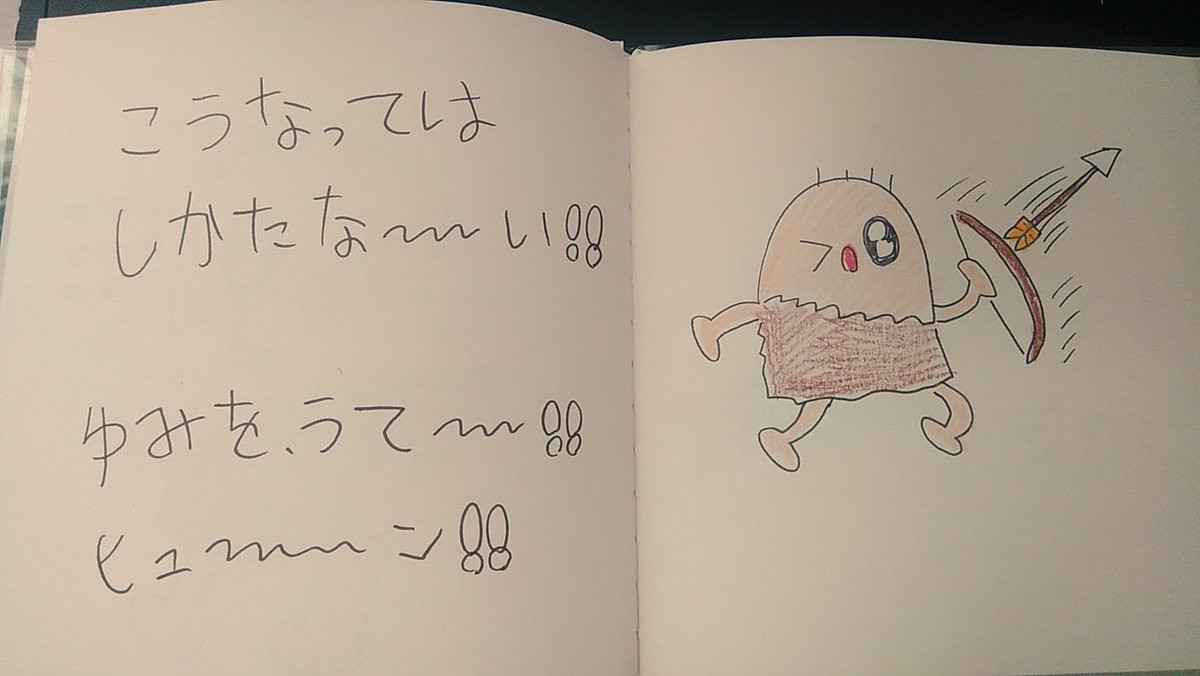 こうなっては
しかたな〜〜い!!
ゆみを、うて〜〜!!
ヒュ〜〜〜ン!!